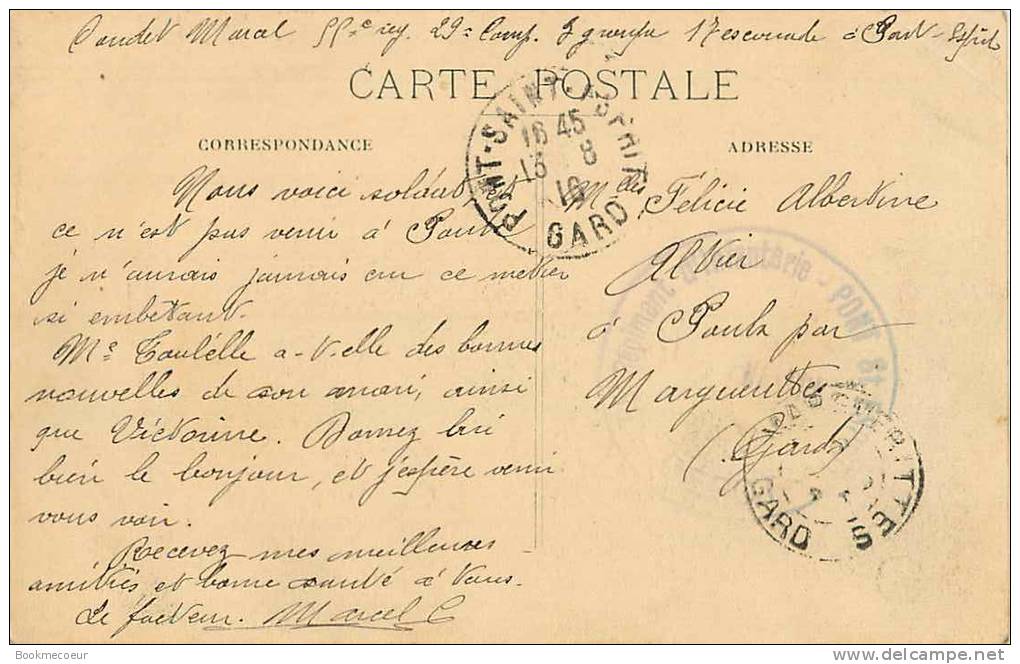 Marcel 55e reg. 29e Comp. 17 escouade à Pont-St-Esprit
CARTE POSTALE
PONT-SAINT-ESPRIT
16 45
13 8
16
GARD
CORRESPONDANCE
ADRESSE
Nous voici soldat et
ce n'est pas venir à Poulx
je n'aurais jamais cru ce métier
si embêtant.
Me a-t-elle des bonnes
nouvelles de son mari, ainsi
que Victorine. Donnez lui
bien le bonjour, et j'espère venir
vous voir.
Recevez mes meilleures
amitiés et bonne santé à tous.
Le facteur. Marcel C
Mlles Félicie Albertine
à Poulx par
Marguerittes
(Gard)
Régiment d'Infanterie - PONT St
MARGUERITTES
GARD
Bookmecoeur
www.delcampe.net